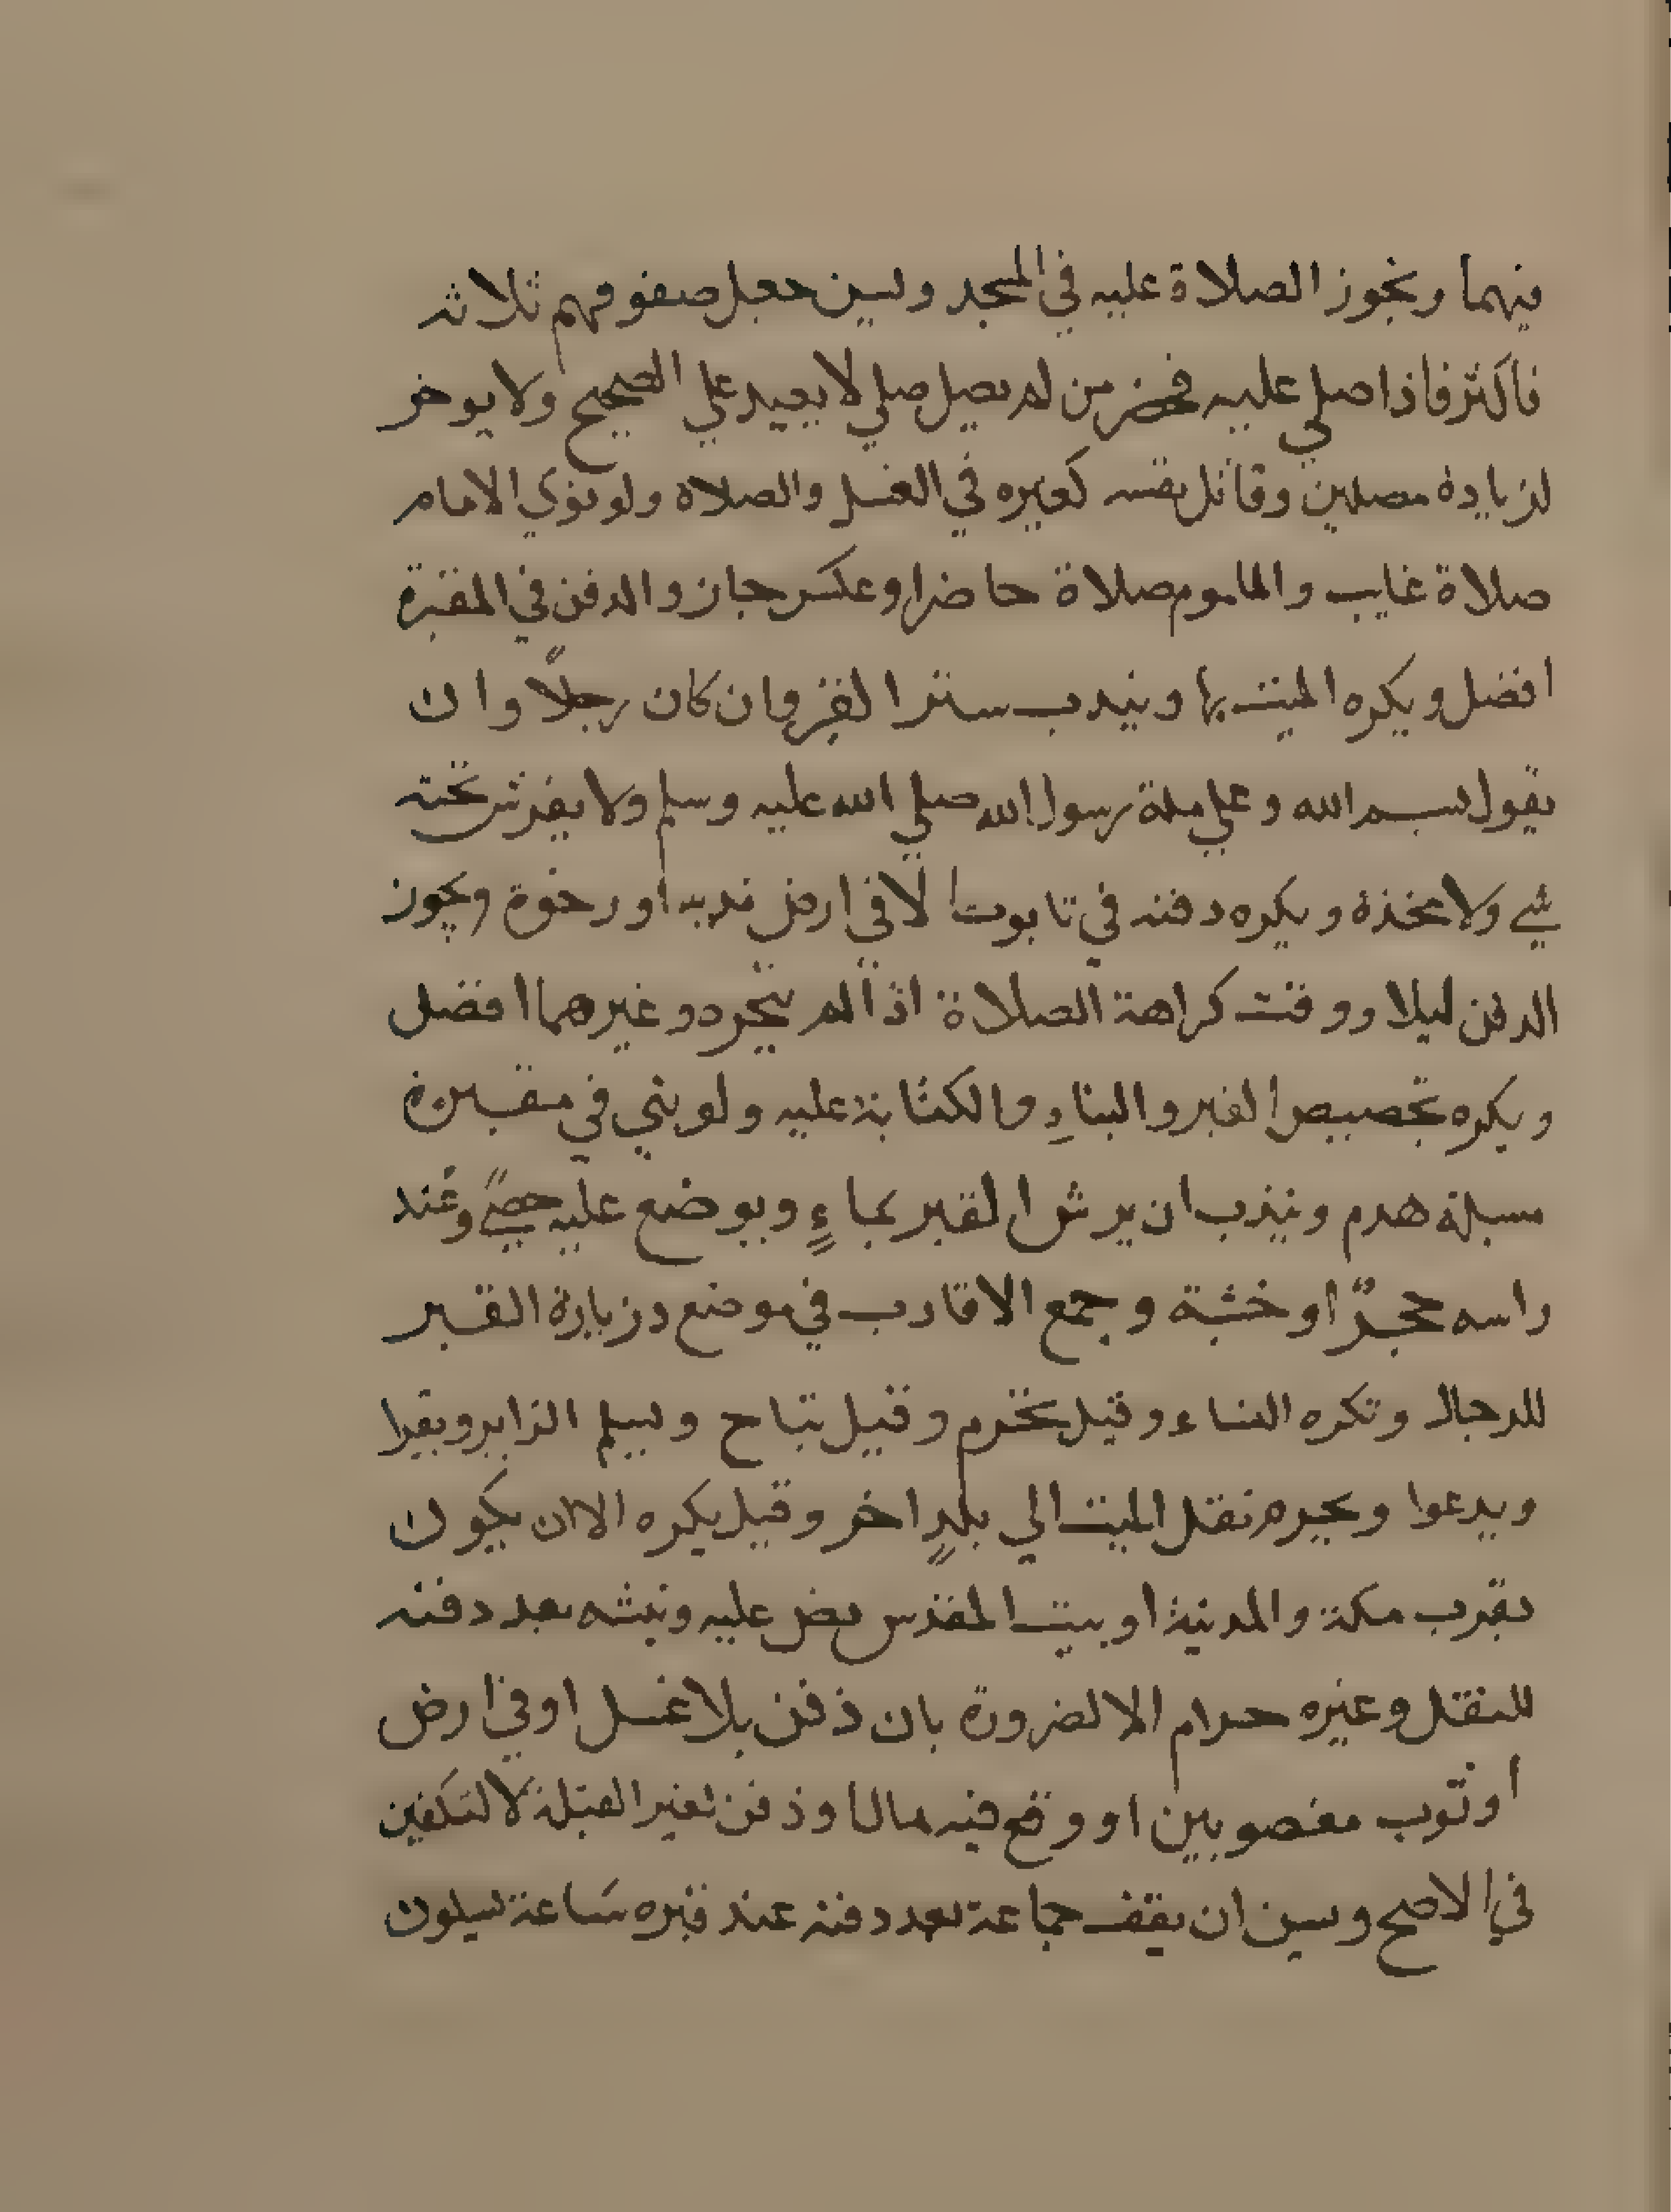 فيهما وتجوز الصلاة عليه في المسجد ويسن جعل صفوفهم ثلاثه
فاكثر فاذا صلي عليه فحضر من لم يصل صلي لا يعيد علي الصحيح ولا يوخر
لزيادة مصلين وقاتل نفسه كغيره في الغسل والصلاة ولو نوي الامام
صلاة غايب والماموم صلاة حاضر او عكس جاز والدفن في المقبرة
افضل ويكره المبيت بها ويندب ستر القبر وان كان رجلاً وان
يقول بسم الله وعلي ملة رسول الله صلي الله عليه وسلم ولا يفرش تحته
شي ولا مخذة ويكره دفنه في تابوت الا في ارض نديه او رخوة ويجوز
الدفن ليلا ووقت كراهة الصلاة اذا لم يتحره وغيرهما افضل
ويكره تجصيص القبر والبناءِ والكتابة عليه ولو بني في مقبرة
مسبلة هدم ويندب ان يرش القبر بماءٍ ويوضع عليه حصيً وعند
راسه حجرٌ او خشبة وجمع الاقارب في موضع وزيارة القبر
للرجال وتكره النساء وقيل تحرم وقيل تباح ويسلم الزاير ويقرا
ويدعوا ويحرم نقل الميت الي بلدٍ اخر وقيل يكره الا ان يكون
بقرب مكة والمدينة او بيت المقدس نص عليه ونبشه بعد دفنه
للنقل وغيره حرام الا لضرورة بان دفن بلا غسل او في ارض
او ثوب مغصوبين او وقع فيه مال او دفن لغير القبلة لا لتكفين
في الاصح ويسن ان يقف جماعة بعد دفنه عند قبره ساعة يسلون